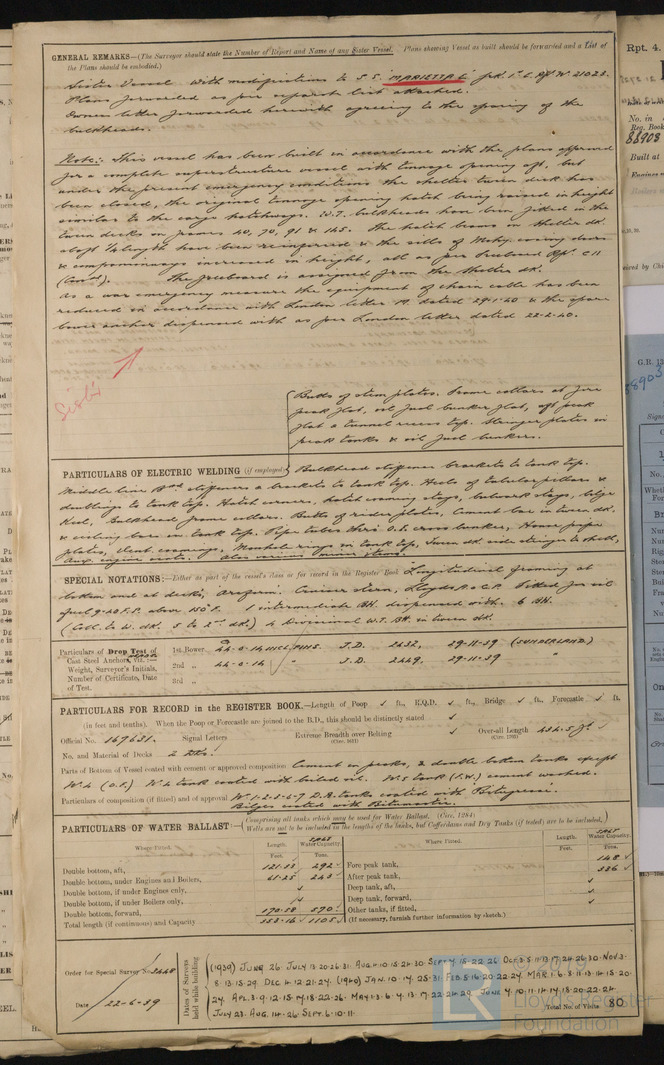 GENERAL REMARKS—(The Surveyor should state the Number of Report and Name of any Sister Vessel. Plans showing Vessel as built should be forwarded and a List of
the Plans should be embodied.)
Sister Vessel with modifications to S.S. "MARIETTA E"
Plans forwarded as per separate list attached.
Owners letter forwarded herewith agreeing to the spacing of the
bulkheads.
Note:- This vessel has been built in accordance with the plans approved
for a complete superstructure vessel with tonnage opening aft, but
under the present emergency conditions the shelter tween deck has
been closed, the original tonnage opening hatch being raised in height
similar to the cargo hatchways. W.T. bulkheads have been fitted in the
tween decks on frames 40, 70, 91 & 145. The hatch beams on Shelter dk.
abaft ¼ length have been reinforced & the sills of Mchy. casing doors
& companionways increased in height, all as per Freeboard Rpt. C 11
(Contd). The freeboard is assigned from the Shelter dk.
As a war emergency measure the equipment of chain cable has been
reduced in accordance with London letter M. dated 29-1-40 & the spare
bower anchor dispensed with as per London letter dated 22-2-40.
Butts of stem plates. Frame collars at fore
peak flat, oil fuel bunker flat, aft peak
flat & tunnel recess top. Stringer plates in
peak tanks & oil fuel bunkers.
PARTICULARS OF ELECTRIC WELDING (if employed) Bulkhead stiffener brackets to tank top.
Middle line Bhd stiffeners & brackets to tank top. Heels of tubular pillars &
doublings to tank top. Hatch corners, hatch coaming stays, bulwark stays, bilge
Keel, Bulkhead frame collars. Butts of rider plates, Cement bar in tween dk.
& ceiling bars on tank top. O.F. cross bunker, Hawse pipe
plates, Vent coamings, Manhole rings on tank top, Tween dk. side stringer to shell,
Aux. engine seats. Also various minor items.
SPECIAL NOTATIONS:—Either as part of the vessel's class or for record in the Register Book Longitudinal framing at
bottom and at decks, Arcform. Cruiser stern, Lloyds A. & C.P. Fitted for oil
fuel 9-40 F.P. above 150°F. 1 intermediate BH. dispensed with. 6 BH.
(Coll. to W. dk. 5 to 2nd dk.) 4 Divisional W.T. BH. in tween dk.
Particulars of Drop Test of
Cast Steel Anchors, viz.:—
Weight, Surveyor's Initials,
Number of Certificate, Date
of Test.
1st Bower 44-0-14 J.D. 2432, 29-11-39 (SUNDERLAND)
2nd „ 44-0-14 „ J.D. 2449, 29-11-39 „
3rd „
PARTICULARS FOR RECORD in the REGISTER BOOK.—Length of Poop ✓ ft., R.Q.D. ✓ ft., Bridge ✓ ft., Forecastle ✓ ft.
(in feet and tenths). When the Poop or Forecastle are joined to the B.D., this should be distinctly stated ✓
Official No. 167631. Signal Letters Extreme Breadth over Belting ✓ Over-all Length 434.5 ft
(Circ. 1703)
No. and Material of Decks 2 Stl.
Parts of Bottom of Vessel coated with cement or approved composition Cement in peaks, & double bottom tanks except
No 4 (O.F.) No 4 tank coated with boiled oil. No 5 tank (F.W.) cement washed.
Particulars of composition (if fitted) and of approval Nos 1-2-3-6-7 D.B. tanks coated with
Bilges coated with Bitumastic.
PARTICULARS OF WATER BALLAST:—(Comprising all tanks which may be used for Water Ballast. (Circ. 1284)
Wells are not to be included in the lengths of the tanks, but Cofferdams and Dry Tanks (if tested) are to be included,)
Where Fitted. Length. Water Capacity. Where Fitted. Length. Water Capacity.
Feet. Tons. Feet. Tons.
Double bottom, aft, 121.33 292 Fore peak tank, 148 ✓
Double bottom, under Engines and Boilers, 61.25 243 After peak tank, 336 ✓
Double bottom, if under Engines only, ✓ Deep tank, aft, ✓
Double bottom, if under Boilers only, ✓ Deep tank, forward, ✓
Double bottom, forward, 170.58 570 Other tanks, if fitted, ✓
Total length (if continuous) and Capacity 353.16 1105 (If necessary, furnish further information by sketch.)
Order for Special Survey No. 5448
Date 22-6-39
Dates of Surveys held while building
(1939) JUNE 26. JULY 13-20-26-31. AUG. 4-10-15-24-30. SEPT 7-15-22-26 OCT. 3-5-11-13-17-24-26-30. NOV. 3-
8-13-15-29. DEC. 4-12-21-27. (1940) JAN. 10-14-25-31. FEB. 5-16-20-22-27. MAR. 1-6-8-11-13-14-15-20-
24. APL. 3-9-12-15-17-18-22-26. MAY 1-3-6-9-13-17-22-24-29. JUNE 4-10-11-14-18-20-22-24.
JULY 23. AUG. 14-26. SEPT. 6-10-11.
Total No. of Visits 80
© 2019
Lloyd's Register
Foundation
Rpt. 4.
No. in
Reg. Book
88903
Built at